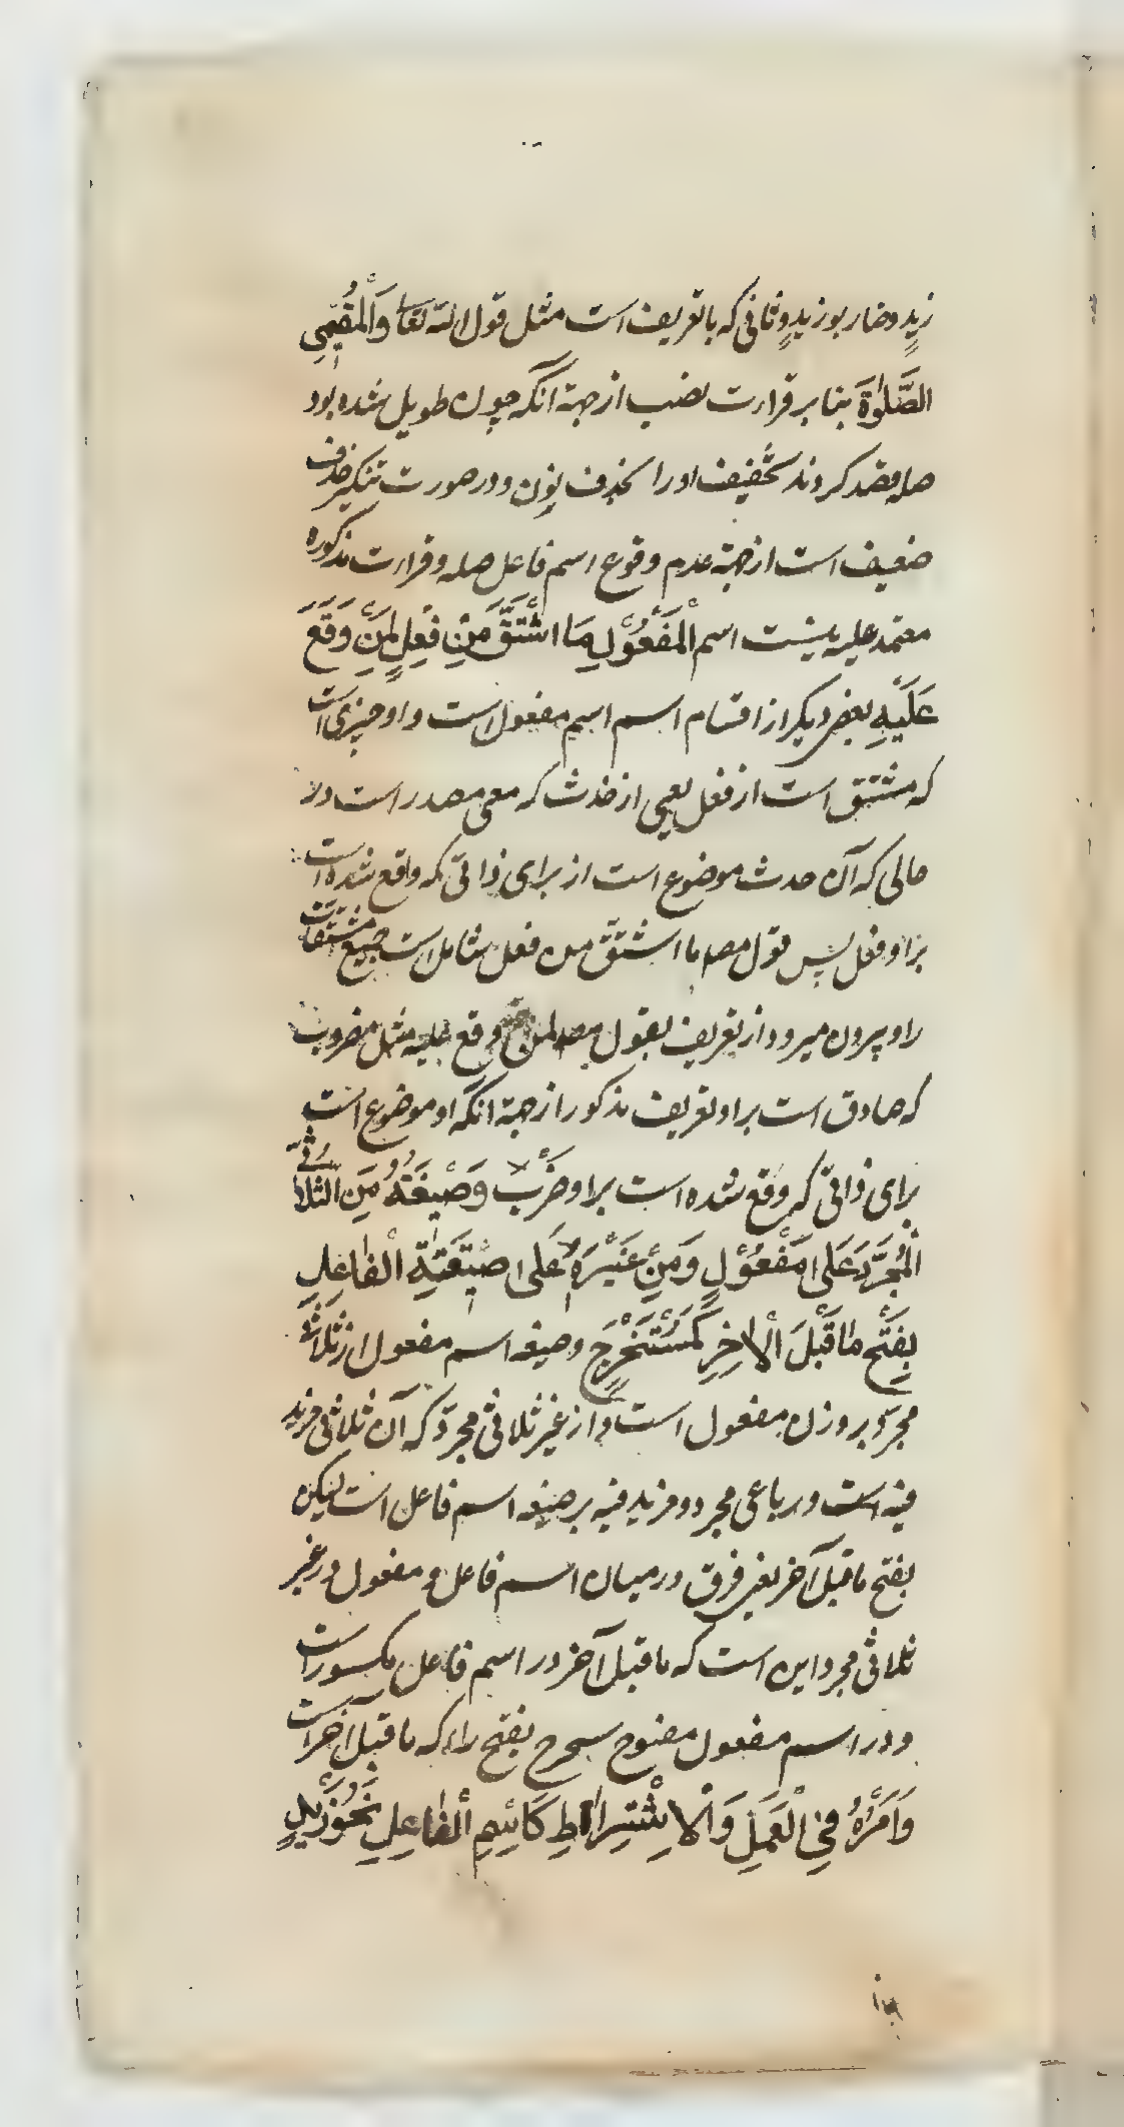 زیدٍ وضاربو زیدٍ وثانی که با تعریف است مثل قول الله تعا وَالْمُقِیمِی
الصَّلوٰةَ بنا بر قراءت نصب از جهة آنکه چون طویل شده بود
صله قصد کردند تخفیف اورا بحذف نون و در صورت تنکیر حذف
ضعیف است از جهة عدم وقوع اسم فاعل صله و قراءت مذکوره
معتمد علیه نیست اسم الْمَفْعُوْلِ مَا اشْتَقَّ مِنْ فِعْلٍ لِمَنْ وَقَعَ
عَلَیْهِ بعض دیگر از اقسام اسم اسم مفعول است و او چیزی است
که مشتق است از فعل یعنی از حدث که معنی مصدر است در
حالی که آن حدث موضوع است از برای ذاتی که واقع شده است
بر او فعل پس قول مصه ما اشتقّ من فعل شامل است جمیع مشتقات
را و بیرون میرود از تعریف بقول مصه لمن وقع علیه مثل مضروب
که صادق است بر او تعریف مذکور از جهة انکه او موضوع است
برای ذاتی که وقع شده است بر او ضَرْب وَصِیْغَتُهُ مِنَ الثّلاثیّ
الْمُجَرَّدِ عَلَی مَفْعُوْلٍ وَمِنْ غَیْرِهٖ عَلی صِیْغَةِ الْفَاعِلِ
بِفَتْحِ مَا قَبْلَ الْاٰخِرِ کَمُسْتَخْرَجٍ وصیغه اسم مفعول از ثلاثی
مجرّد بر وزن مفعول است و از غیر ثلاثی مجرّد که آن ثلاثی مزید
فیه است و رباعی مجرد و مزید فیه بر صیغه اسم فاعل است لیکن
بفتح ماقبل آخر یعنی فرق در میان اسم فاعل و مفعول در غیر
ثلاثی مجرد این است که ماقبل آخر در اسم فاعل مکسور است
و در اسم مفعول مفتوح بفتح راء که ماقبل آخر است
وَاَمْرُهُ فِی الْعَمَلِ وَالْاِشْتِرَاطِ کَاِسْمِ الْفَاعِلِ نَحْوُ زَیْدٍ